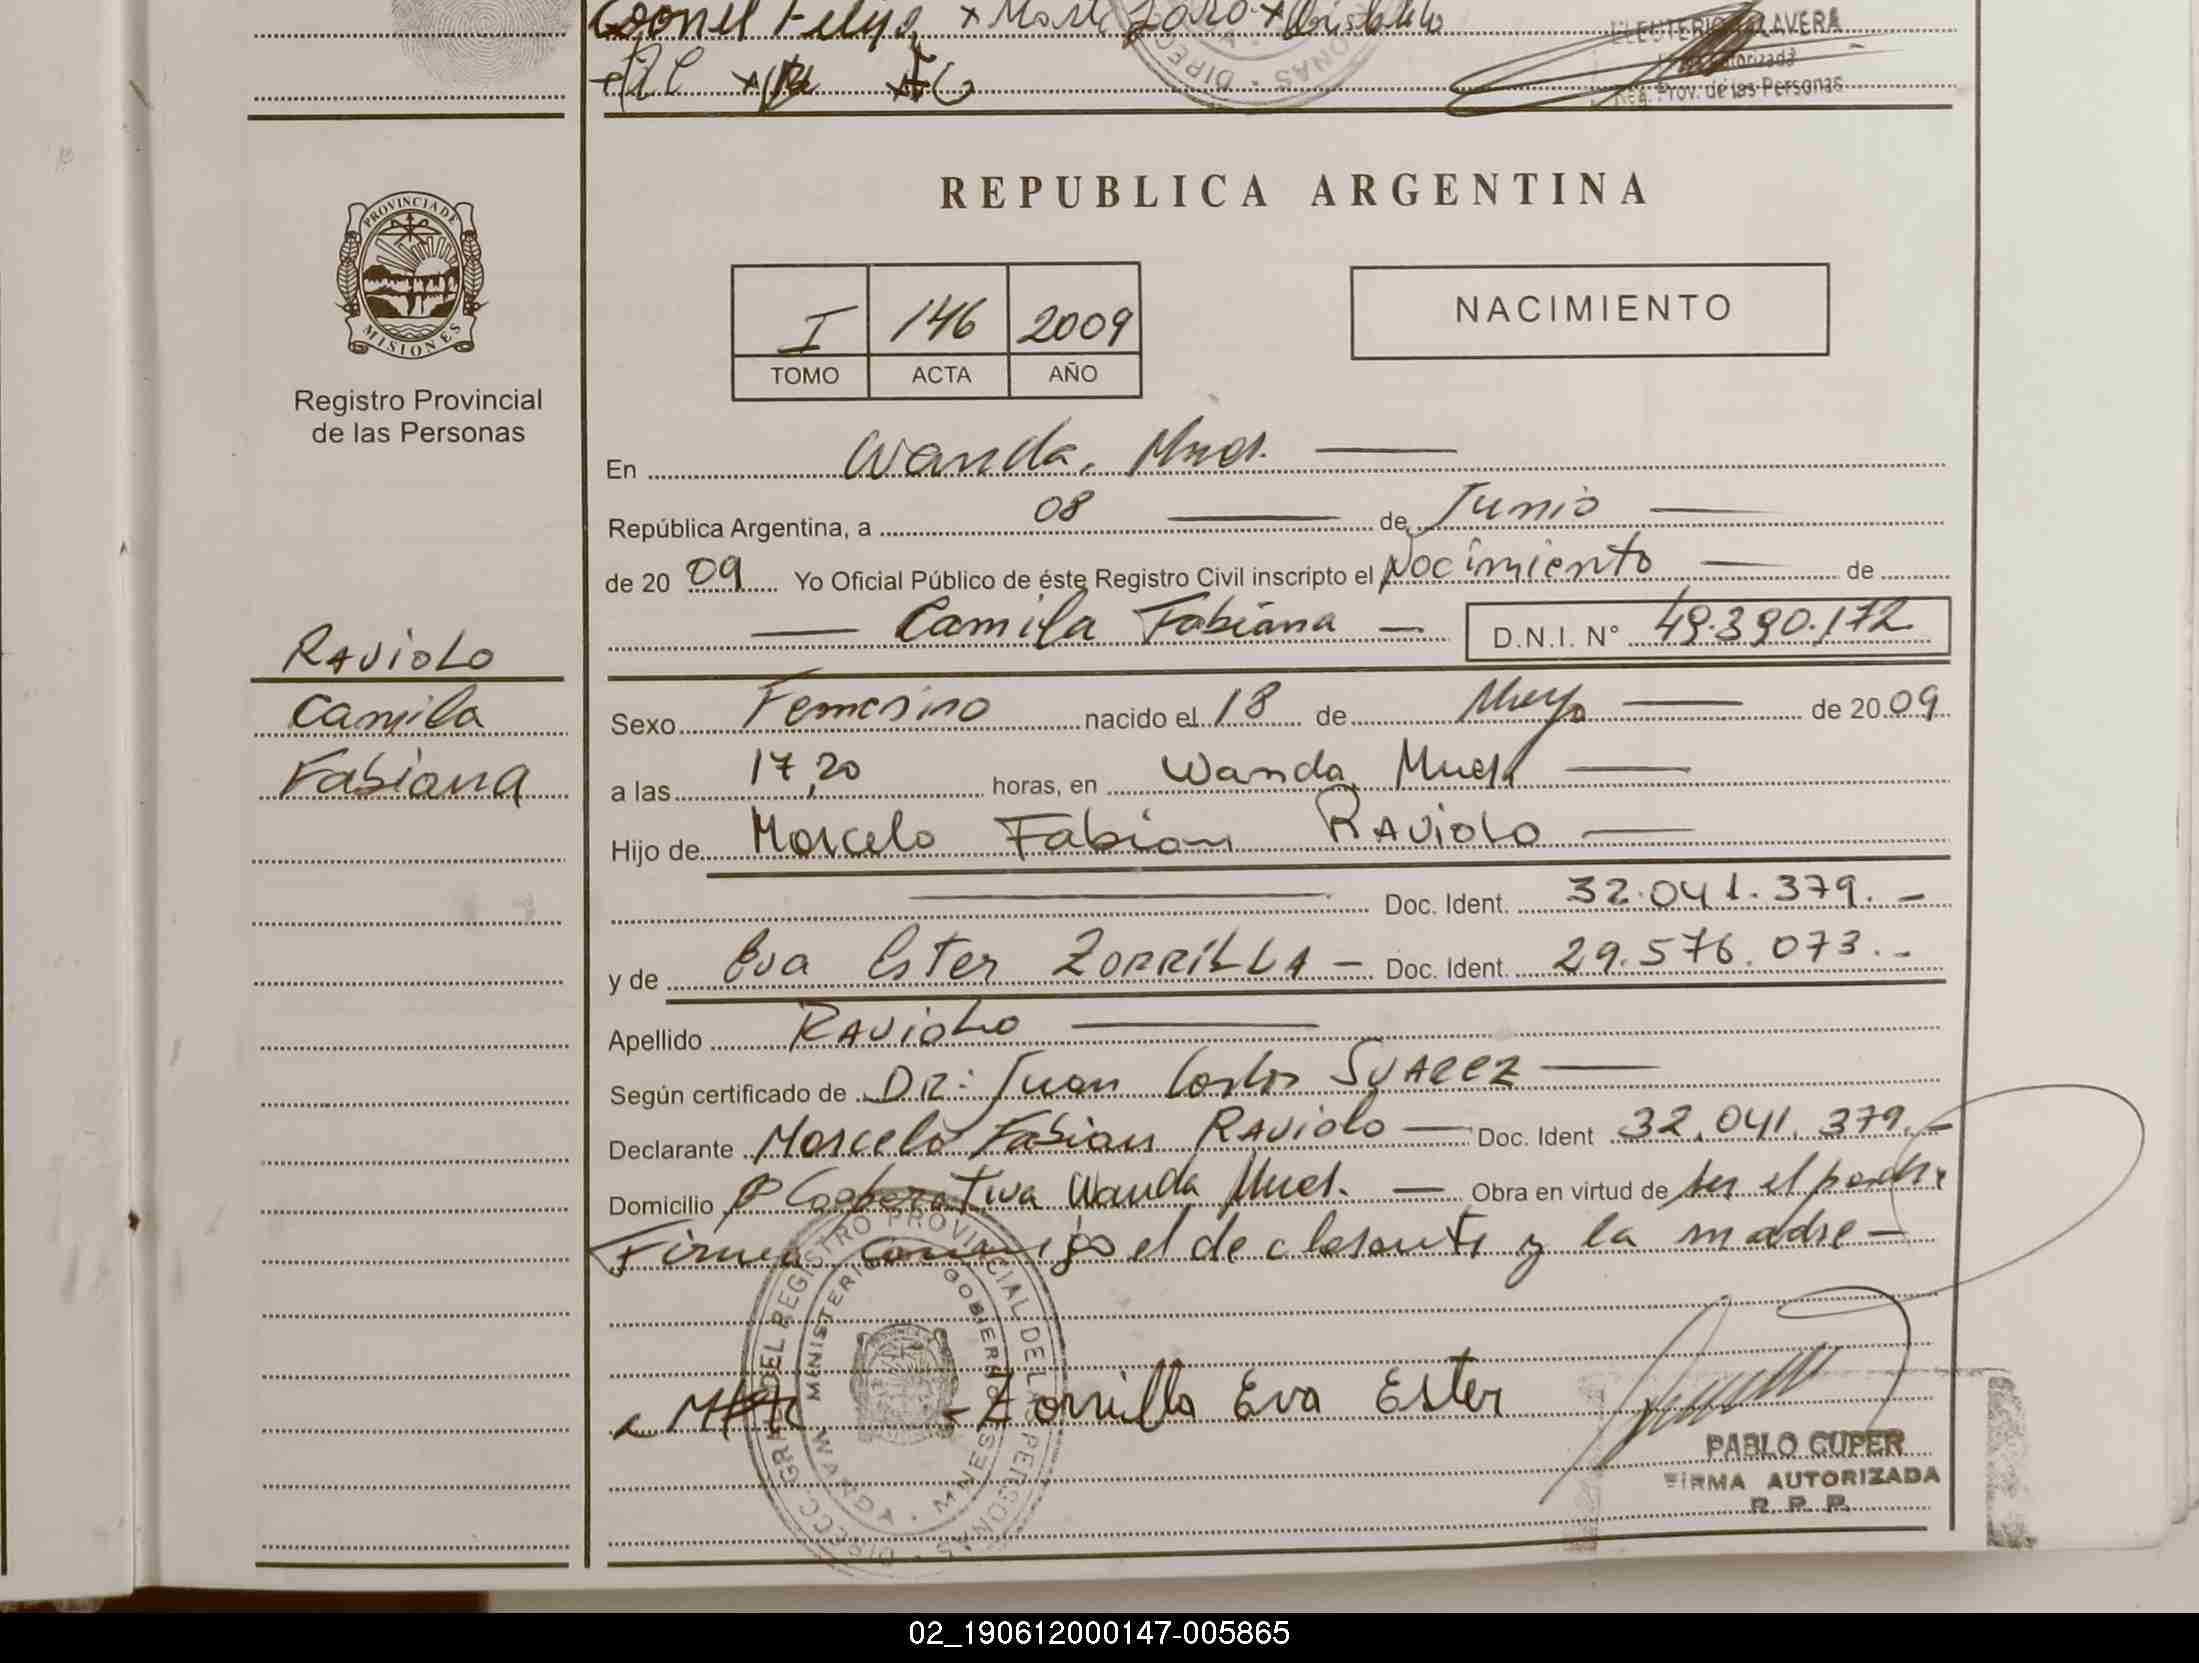 Coonel Felipe
ELEUTERIO TALAVERA
Autorizada
Reg. Prov. de las Personas
DIREC PERSONAS
PROVINCIA DE
MISIONES
Registro Provincial
de las Personas
RAVIOLO
Camila
Fabiana
REPUBLICA ARGENTINA
I 146 2009
TOMO ACTA AÑO
NACIMIENTO
En Wanda, Mnes.
República Argentina, a 08 de Junio
de 20 09 Yo Oficial Público de éste Registro Civil inscripto el Nacimiento de
Camila Fabiana D.N.I. N° 49.390.172
Sexo Femenino nacido el 18 de Mayo de 20 09
a las 17,20 horas, en Wanda, Mnes
Hijo de Marcelo Fabian RAVIOLO
Doc. Ident. 32.041.379.-
y de Eva Ester ZORRILLA - Doc. Ident. 29.576.073.-
Apellido RAVIOLO
Según certificado de DR: Juan Carlos SUAREZ
Declarante Marcelo Fabian RAVIOLO Doc. Ident 32.041.379.-
Domicilio Cooperativa Wanda Mnes. - Obra en virtud de ser el padre
Firma conmigo el declarante y la madre -
DIRECC. GRAL DEL REGISTRO PROVINCIAL DE LAS PERSONAS
MINISTERIO GOBIERNO
WANDA - MNES
Zorrilla Eva Ester
PABLO CUPER
FIRMA AUTORIZADA
R. P. P.
02_190612000147-005865